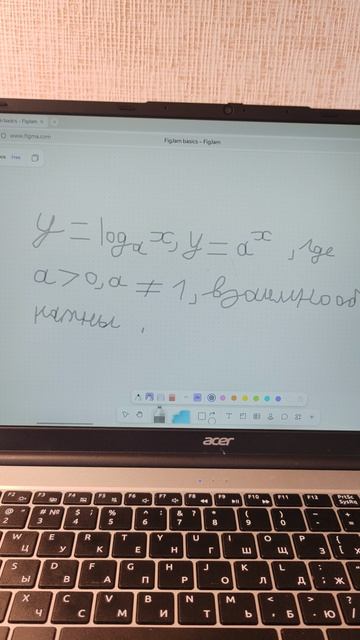 basics – FigJam
www.figma.com
FigJam basics – FigJam
Free
y = logₐx, y = aˣ, где
a > 0, a ≠ 1, взаимнооб
ратны.
acer
F2 F3 F4 F5 F6 F7 F8 F9 F10 F11 F12 PrtSc SysRq
@ " 2 # № 3 $ ; 4 % : 5 ^ 6 & ? 7 * 8 ( 9 ) 0 _ - + =
W Ц E У R К T Е Y Н U Г I Ш O Щ P З { [ Х
S Ы D В F А G П H Р J О K Л L Д : ; Ж
X Ч C С V М B И N Т M Ь < , Б > . Ю